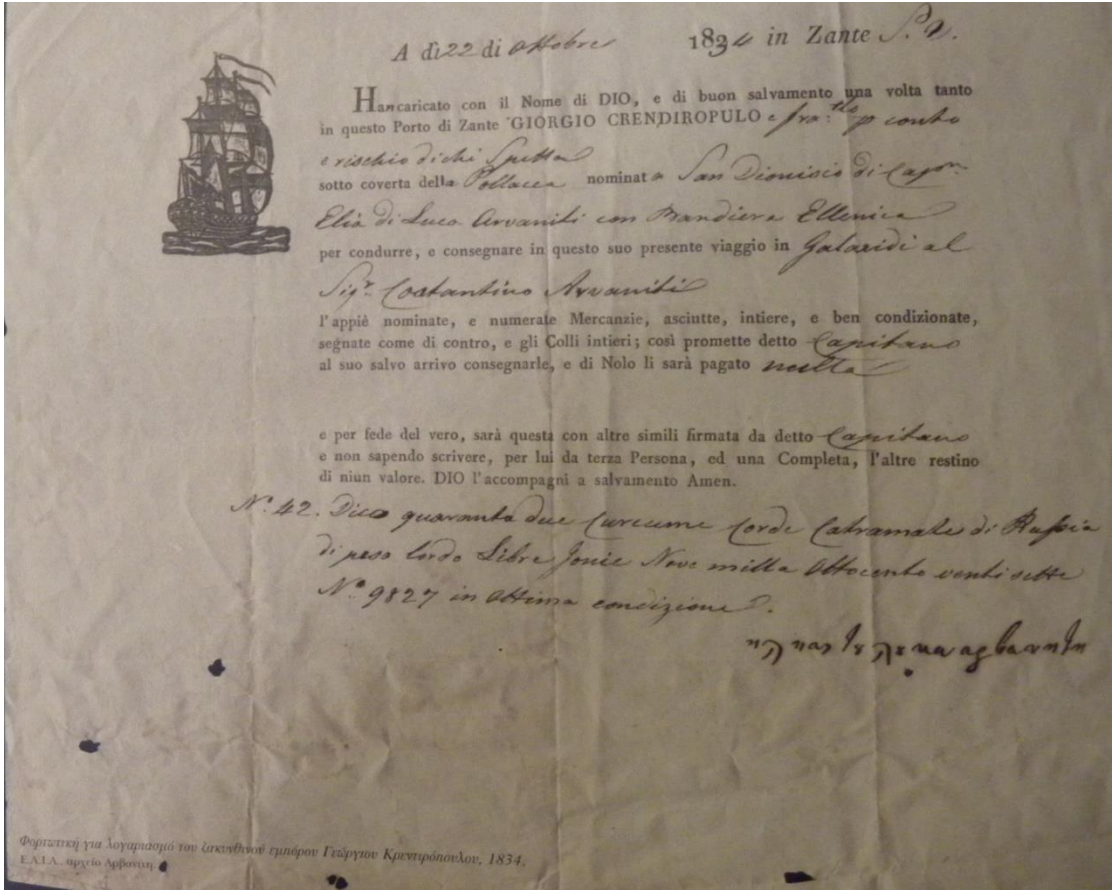 A dì 22 di Ottobre 1834 in Zante S. V.
Hancaricato con il Nome di DIO, e di buon salvamento una volta tanto
in questo Porto di Zante GIORGIO CRENDIROPULO e fra:tlo p conto
e rischio di chi Spetta
sotto coverta della Pollacca nominata San Dionisio di Capn.
Elia di Luca Arvaniti con Bandiera Ellenica
per condurre, e consegnare in questo suo presente viaggio in Galaxidi al
Sigr. Costantino Arvaniti
l'appiè nominate, e numerate Mercanzie, asciutte, intiere, e ben condizionate,
segnate come di contro, e gli Colli intieri; così promette detto Capitano
al suo salvo arrivo consegnarle, e di Nolo li sarà pagato nulla
e per fede del vero, sarà questa con altre simili firmata da detto Capitano
e non sapendo scrivere, per lui da terza Persona, ed una Completa, l'altre restino
di niun valore. DIO l'accompagni a salvamento Amen.
No. 42. Dico quaranta due Curcume Corde Catramate di Russia
di peso lordo Libre Jonie Nove milla Ottocento venti sette
No. 9827 in ottima condizione.
Φορτωτική για λογαριασμό του ζακυνθινού εμπόρου Γεώργιου Κρεντιρόπουλου, 1834.
Ε.Λ.Ι.Α., αρχείο Αρβανίτη